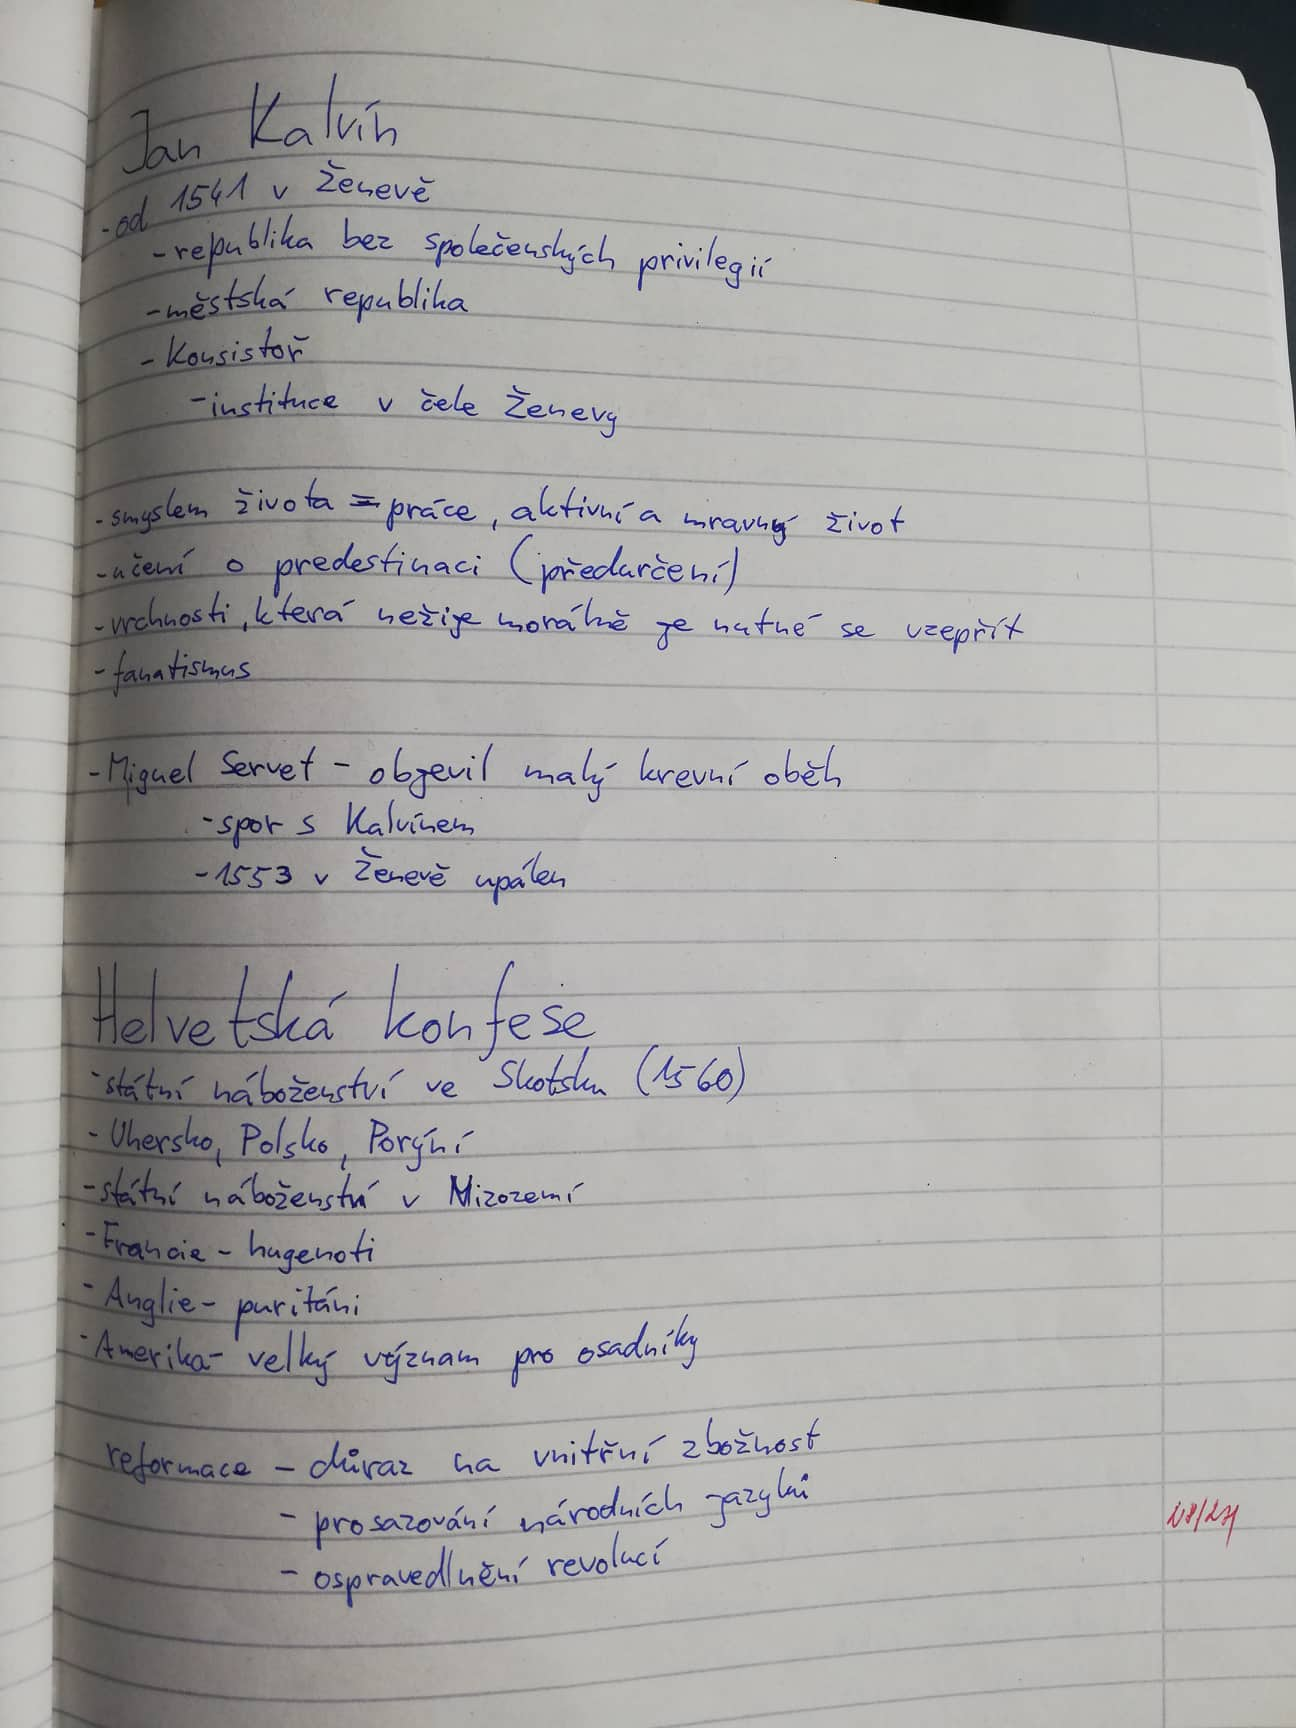 Jan Kalvín
- od 1541 v Ženevě
- republika bez společenských privilegií
- městská republika
- Konsistoř
- instituce v čele Ženevy
- smyslem života = práce, aktivní a mravný život
- učení o predestinaci (předurčení)
- vrchnosti, která nežije morálně je nutné se vzepřít
- fanatismus
- Miguel Servet - objevil malý krevní oběh
- spor s Kalvínem
- 1553 v Ženevě upálen
Helvetská konfese
- státní náboženství ve Skotsku (1560)
- Uhersko, Polsko, Porýní
- státní náboženství v Nizozemí
- Francie - hugenoti
- Anglie - puritáni
- Amerika - velký význam pro osadníky
reformace - důraz na vnitřní zbožnost
- prosazování národních jazyků
- ospravedlnění revolucí